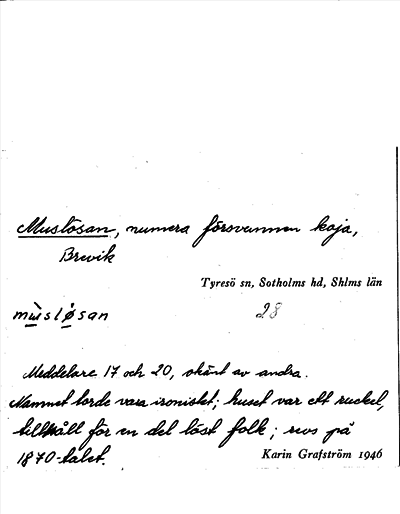 Muslösan, numera försvunnen koja,
Brevik
Tyresö sn, Sotholms hd, Shlms län
mu̠̇̀slǿ̠san
28
Meddelare 17 och 20, okänt av andra.
Namnet torde vara ironiskt; huset var ett ruckel,
tillhåll för en del löst folk; revs på
1870-talet.
Karin Grafström 1946